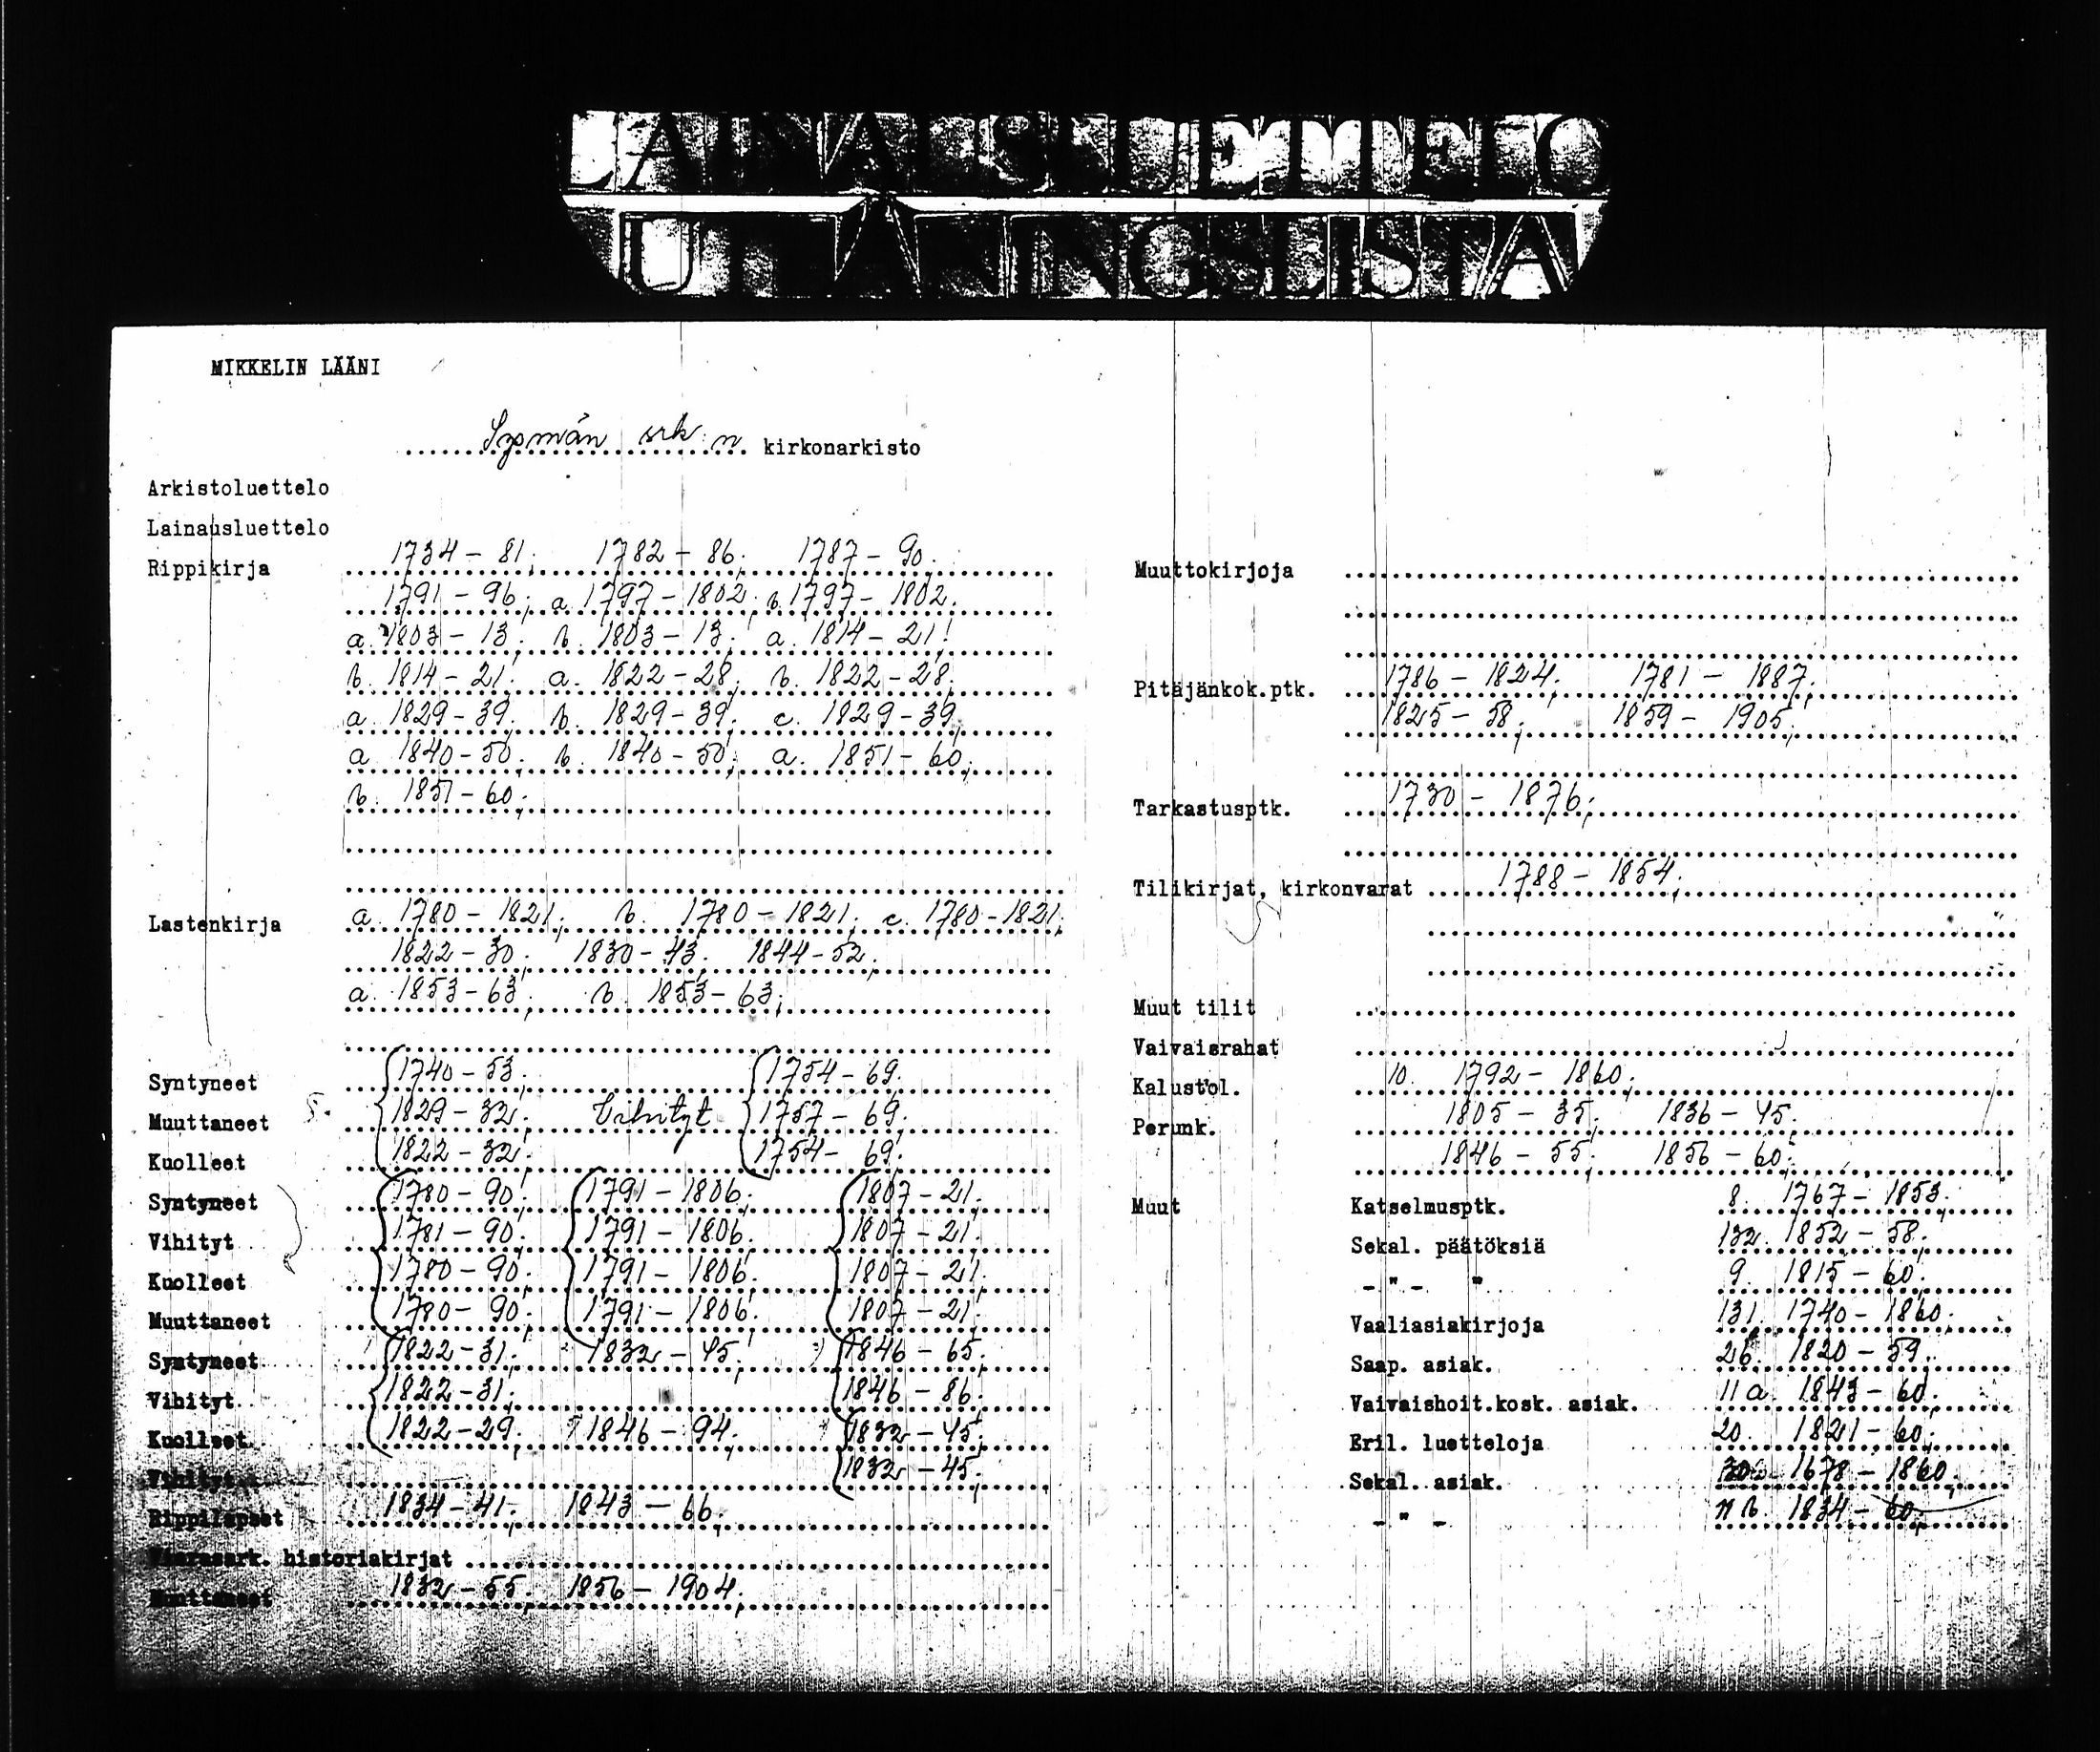 LAINAUSLUETTELO
UTLÅNINGSLISTA
MIKKELIN LÄÄNI
Sysmän srk:n kirkonarkisto
Arkistoluettelo
Lainausluettelo
Rippikirja 1734 - 81; 1782 - 86; 1787 - 90;
1791 - 96; a. 1797 - 1802; b. 1797 - 1802;
a. 1803 - 13; b. 1803 - 13; a. 1814 - 21;
b. 1814 - 21; a. 1822 - 28; b. 1822 - 28;
a. 1829 - 39; b. 1829 - 39; c. 1829 - 39;
a. 1840 - 50; b. 1840 - 50; a. 1851 - 60;
b. 1851 - 60;
Lastenkirja a. 1780 - 1821; b. 1780 - 1821; c. 1780 - 1821;
1822 - 30; 1830 - 43; 1844 - 52;
a. 1853 - 63; b. 1853 - 63;
Syntyneet 1740 - 53; 1754 - 69;
Muuttaneet 1829 - 32; Vihityt 1757 - 69;
Kuolleet 1822 - 32; 1754 - 69;
Syntyneet 1780 - 90; 1791 - 1806; 1807 - 21;
Vihityt 1781 - 90; 1791 - 1806; 1807 - 21;
Kuolleet 1780 - 90; 1791 - 1806; 1807 - 21;
Muuttaneet 1780 - 90; 1791 - 1806; 1807 - 21;
Syntyneet 1822 - 31; 1832 - 45; 1846 - 65;
Vihityt 1822 - 31; 1846 - 86;
Kuolleet 1822 - 29; 1846 - 94; 1832 - 45;
Vihityt 1832 - 45;
Rippilapset 1834 - 41; 1843 - 66;
historiakirjat
Muuttaneet 1832 - 55; 1856 - 1904;
Muuttokirjoja
Pitäjänkok.ptk. 1786 - 1824; 1781 - 1887;
1825 - 58; 1859 - 1905;
Tarkastusptk. 1730 - 1876;
Tilikirjat, kirkonvarat 1788 - 1854;
Muut tilit
Vaivaisrahat
Kalustol. 10. 1792 - 1860;
Perunk. 1805 - 35; 1836 - 45;
1846 - 55; 1856 - 60;
Muut Katselmusptk. 8. 1767 - 1853;
Sekal. päätöksiä 132. 1852 - 58;
- " - " 9. 1815 - 60;
Vaaliasiakirjoja 131. 1740 - 1860;
Saap. asiak. 26. 1820 - 59;
Vaivaishoit.kosk. asiak. 11 a. 1843 - 60;
Eril. luetteloja 20. 1821 - 60;
Sekal. asiak. 1678 - 1860;
- " - 11 b. 1834 - 60;